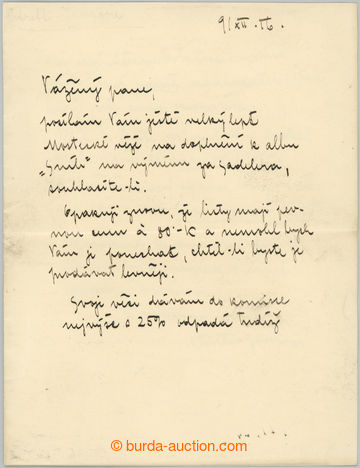 9/XII.16.
Vážený pane,
posílám Vám ještě velký lept
Mostecké věže na doplnění k albu
na výměnu za Sadelera,
souhlasíte-li.
Opakuji znovu, že listy mají pev-
nou cenu à 80·-K a nemohl bych
Vám je ponechat, chtěl-li byste je
prodávat levněji.
Svoji věži dávám do komise
nejvýše s 25% odpadá tudíž
burda-auction.com